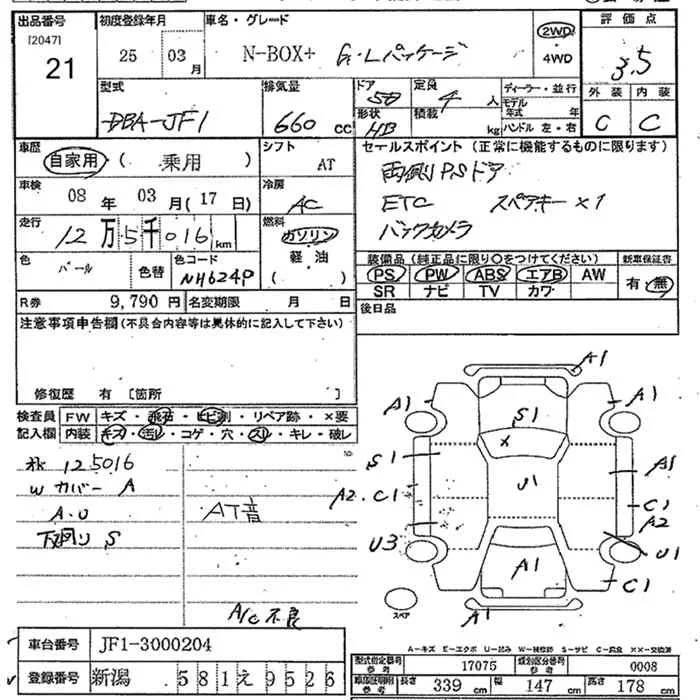 出品番号 初度登録年月 車名・グレード 評価点
[2047] 21 25 03月 N-BOX+ G・Lパッケージ 2WD・4WD 3.5
型式 排気量 ドア 定員 ディーラー・並行 外装 内装
DBA-JF1 660cc 5D 4人 モデル年式 年 C C
形状 HB 積載 kg ハンドル 左・右
車歴 シフト セールスポイント(正常に機能するものに限ります)
自家用 ( 乗用 ) AT 両側PSドア
車検 冷房 ETC スペアキー×1
08年 03月(17日) AC バックカメラ
走行 燃料
12万5千016km ガソリン 軽・油 ( )
色 パール 色替 色コード NH624P
装備品(純正品に限り○をつけてください) 新車保証書
PS PW ABS エアB AW 有・無
SR ナビ TV カワ
R券 9,790円 名変期限 月 日 後日品
注意事項申告欄(不具合内容等は具体的に記入して下さい)
修復歴 有 [箇所 ]
検査員 FW キズ・飛石・ヒビ割・リペア跡・×要
記入欄 内装 キズ・汚レ・コゲ・穴・スレ・キレ・破レ
125016
Wカバー A
A.U AT音
下廻り S
A/C不良
A1
A1 A1
S1
×
S1 U1 A1
A2 C1 C1
A2
U3 U1
A1 C1
スペア A1
A-キズ E-エクボ U-凹み W-補修跡 S-サビ C-腐食 XX-交換済
車台番号 JF1-3000204
登録番号 新潟 581え9526
型式指定番号 参考 17075 類別区分番号 参考 0008
車庫証明用 参考 長さ 339cm 幅 147cm 高さ 178cm